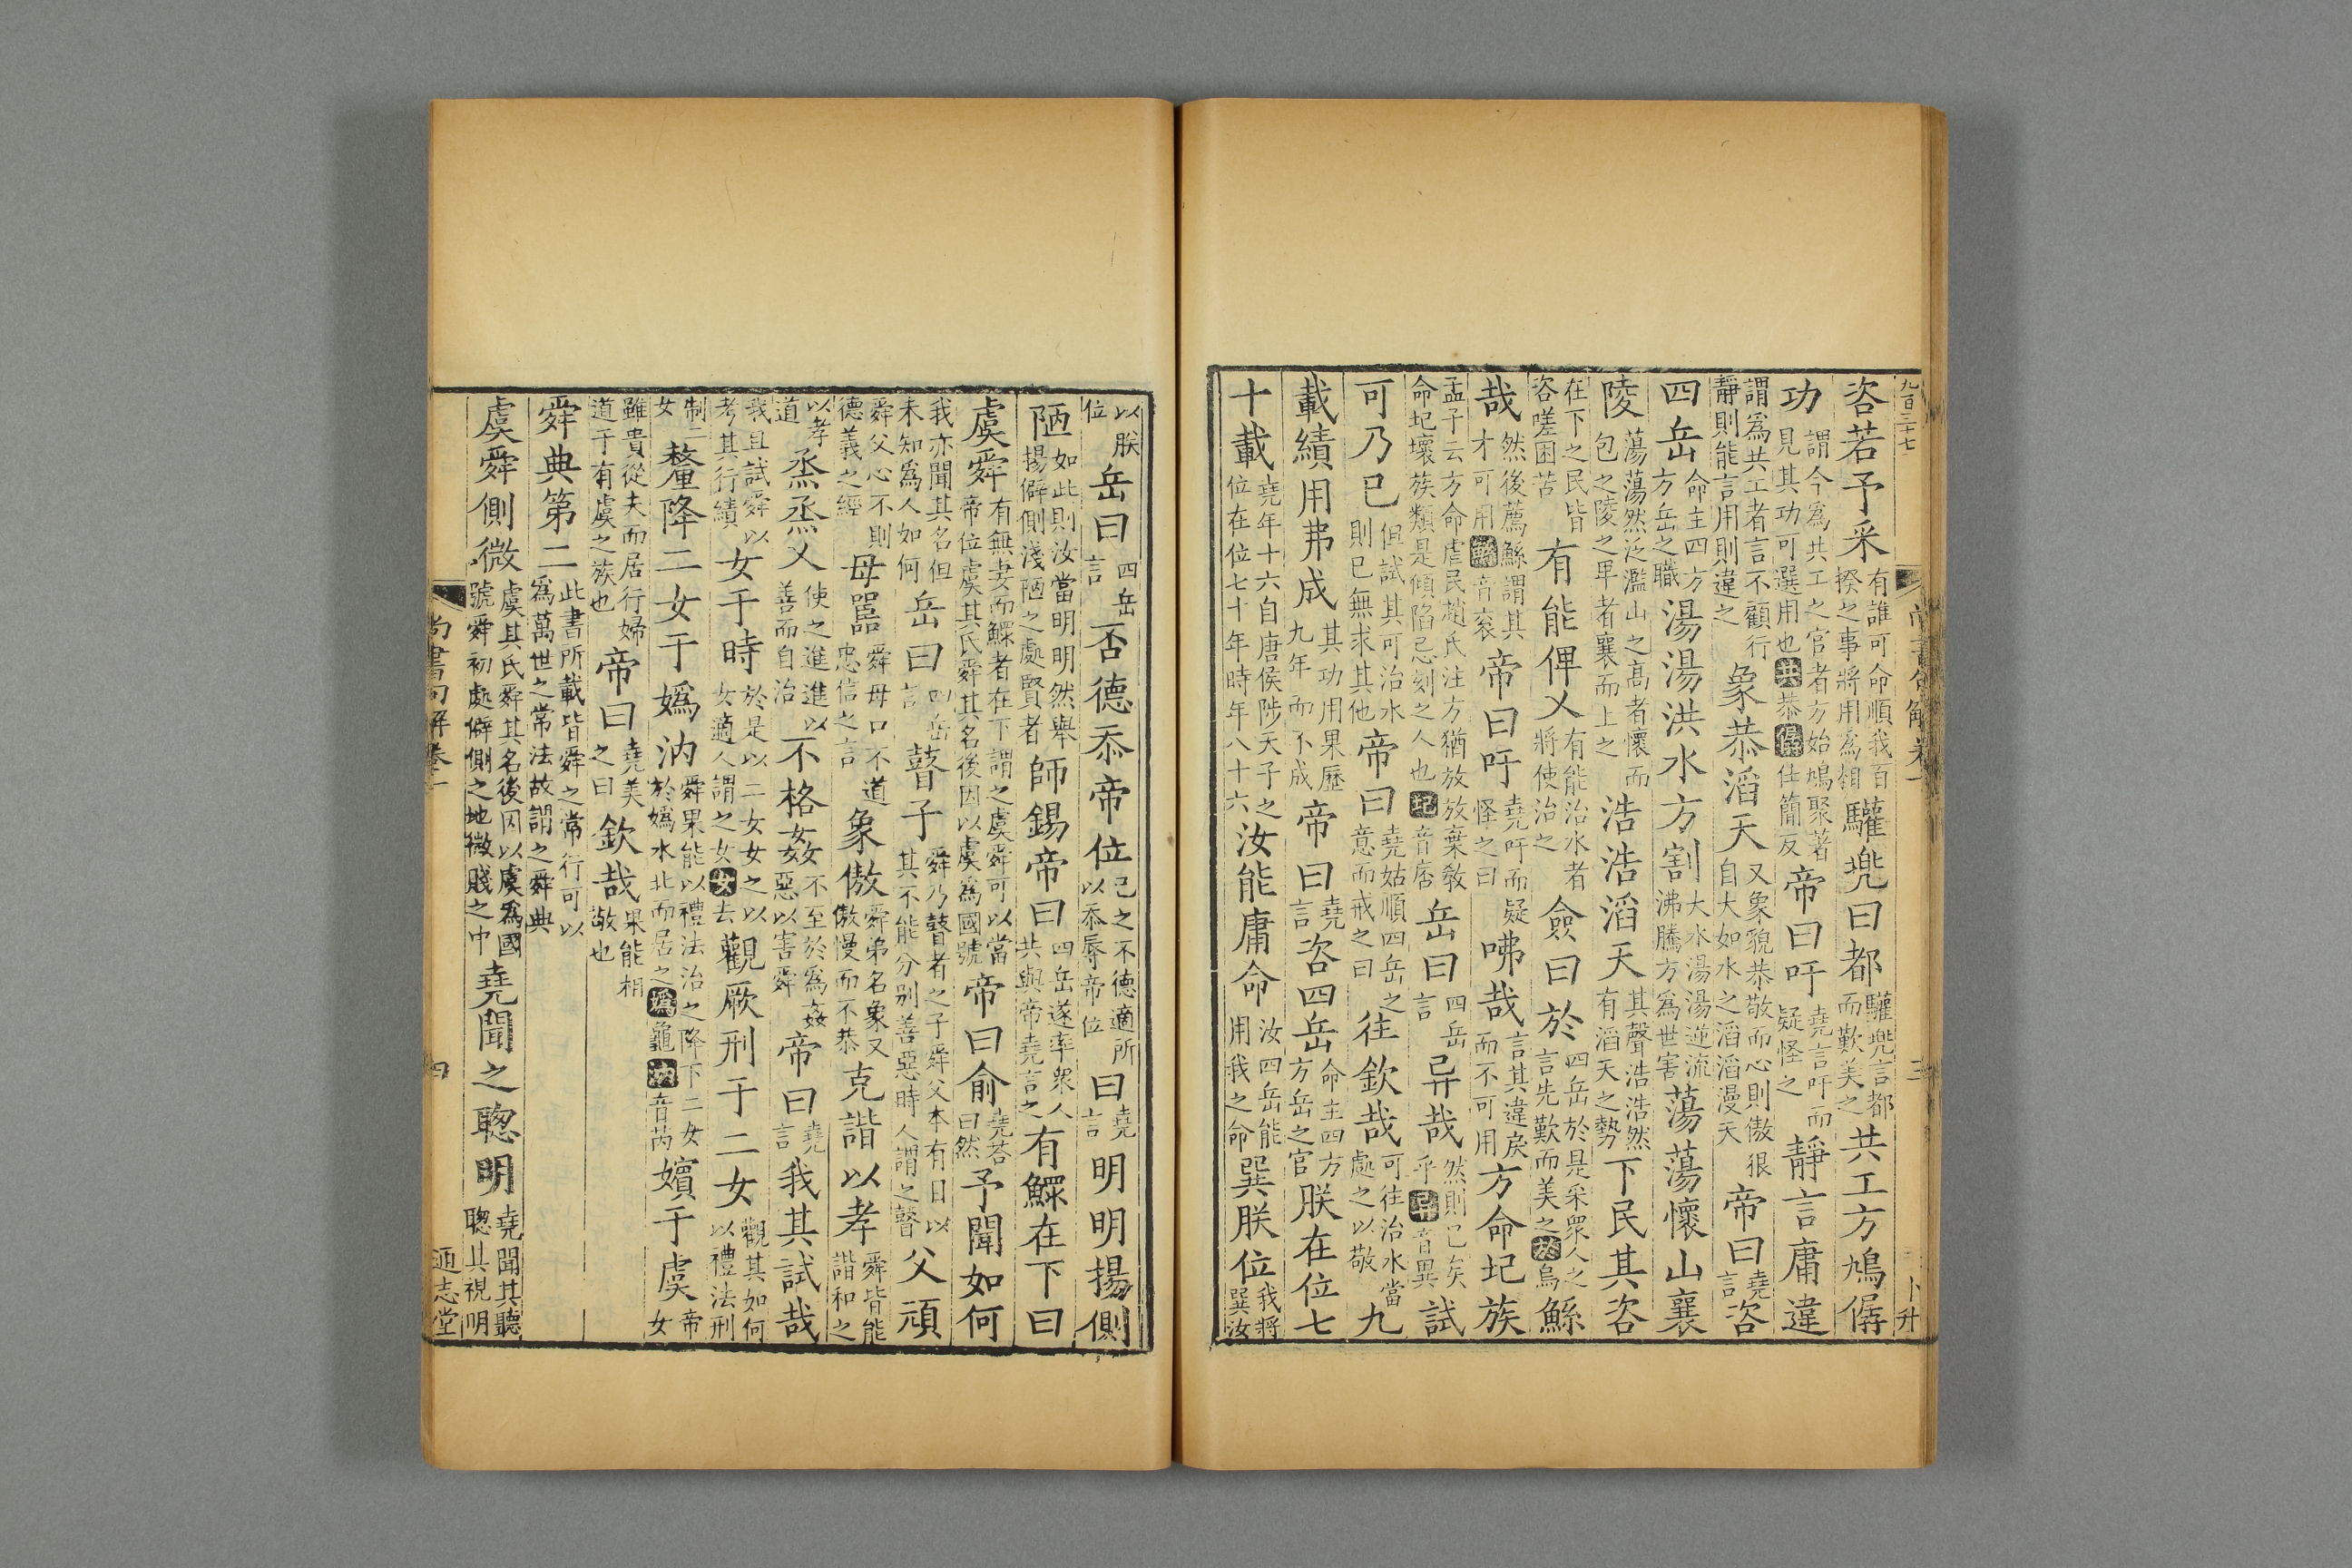 九百三十七 尚書句解卷一 三 卜升
咨若予采有誰可命順我百揆之事將用爲相驩兠曰都驩兠言都而歎美之共工方鳩僝
功謂今爲共工之官者方始鳩聚著見其功可選用也共恭僝仕簡反帝曰吁堯言吁而疑怪之靜言庸違
謂爲共工者言不顧行靜則能言用則違之象恭滔天又象貌恭敬而心則傲很自大如水之滔滔漫天帝曰堯言咨
四岳命主四方方岳之職湯湯洪水方割大水湯湯逆流沸騰方爲世害蕩蕩懷山襄
陵蕩蕩然泛濫山之高者懷而包之陵之卑者襄而上之浩浩滔天其聲浩浩然有滔天之勢下民其咨
在下之民皆咨嗟困苦有能俾乂有能治水者將使治之僉曰於四岳於是采衆人之言先歎而美之於烏鯀
哉然後薦鯀謂其才可用鯀音衮帝曰吁堯吁而疑怪之曰咈哉言其違戾而不可用方命圯族
孟子云方命虐民趙氏注方猶放放棄敎命圯壞族類是傾陷忌刻之人也圯音痞岳曰四岳言异哉然則已矣乎异音異試
可乃已但試其可治水則已無求其他帝曰堯姑順四岳之意而戒之曰往欽哉可往治水當處之以敬九
載績用弗成其功用果歷九年而不成帝曰堯言咨四岳命主四方方岳之官朕在位七
十載堯年十六自唐侯陟天子之位在位七十年時年八十六汝能庸命汝四岳能用我之命巽朕位我將巽汝
以朕位岳曰四岳言否德忝帝位己之不德適所以忝辱帝位曰堯言明明揚側
陋如此則汝當明明然舉揚僻側淺陋之處賢者師錫帝曰四岳遂率衆人共與帝堯言之有鰥在下曰
虞舜有無妻而鰥者在下謂之虞舜可以當帝位虞其氏舜其名後因以虞爲國號帝曰俞堯荅曰然予聞如何
我亦聞其名但未知爲人如何岳曰四岳言瞽子舜乃瞽者之子舜父本有目以其不能分别善惡時人謂之瞽父頑
舜父心不則德義之經母嚚舜母口不道忠信之言象傲舜弟名象又傲慢而不恭克諧以孝舜皆能諧和之
以孝道烝烝乂使之進進以善而自治不格姦不至於爲姦惡以害舜帝曰堯言我其試哉
我且試舜以考其行績女于時於是以二女女之以女適人謂之女女去觀厥刑于二女觀其如何以禮法刑
制二女釐降二女于嬀汭舜果能以禮法治之降下二女於嬀水北而居之嬀龜汭音芮嬪于虞帝女
雖貴從夫而居行婦道于有虞之族也帝曰堯美之曰欽哉果能相敬也
舜典第二此書所載皆舜之常行可以爲萬世之常法故謂之舜典
虞舜側微虞其氏舜其名後因以虞爲國號舜初處僻側之地微賤之中堯聞之聰明堯聞其聽聰其視明
尚書句解卷一 四 通志堂